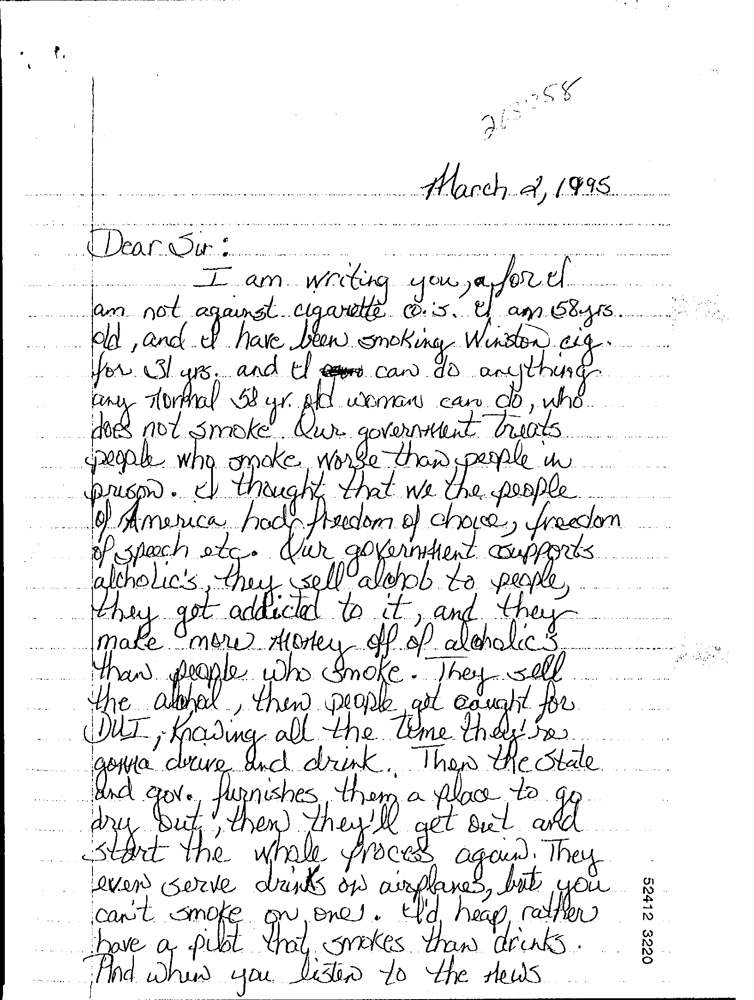 March 2, 1995
Dear Sir:
I am writing you, a for I
am not against cigarette co.'s. I am 58 yrs.
old, and I have been smoking Winston cig.
for 31 yrs. and I can do anything
any normal 58 yr. old woman can do, who
does not smoke. Our government treats
people who smoke worse than people in
prison. I thought that we the people
of America had freedom of choice, freedom
of speech etc. Our government supports
alcholic's, they sell alchol to people,
they get addicted to it, and they
make more money off of alcholic's
than people who smoke. They sell
the alchol, then people get caught for
DUI, knowing all the time they're
gonna drive and drink. Then the state
and gov. furnishes them a place to go
dry out, then they'll get out and
start the whole process again. They
even serve drinks on airplanes, but you
can't smoke on one. I'd heap rather
have a pilot that smokes than drinks.
And when you listen to the news
52412 3220